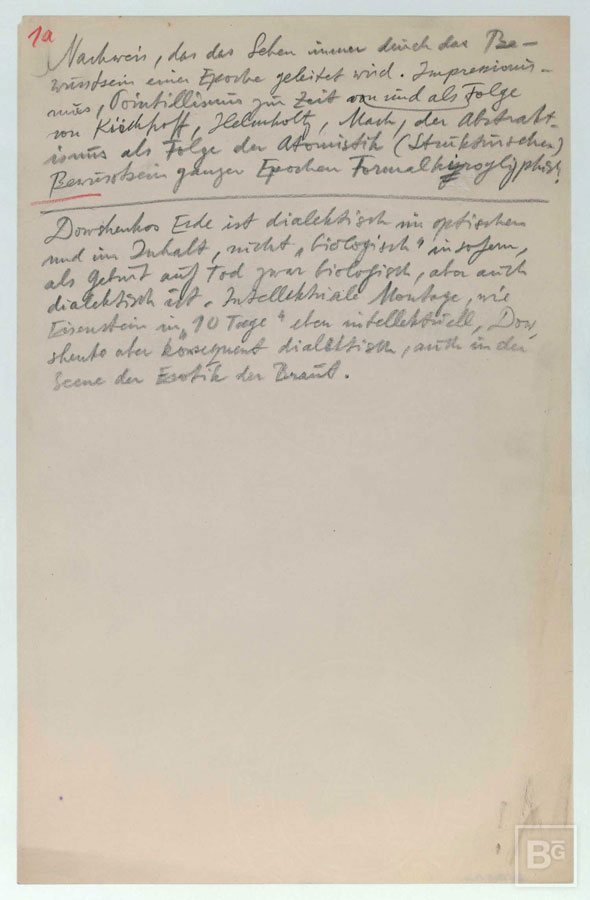 1a
Nachweis, das das Sehen immer durch das Be-
wusstsein einer Epoche geleitet wird. Impressionis-
mus, Pointillismus zur Zeit von und als Folge
von Kirchhoff, Helmholtz, Mach, der Abstrakt-
ismus als Folge der Atomistik (Strukturschen)
Bewusstsein ganzer Epochen Formalhieroglyphisch
Dowshenkos Erde ist dialektisch im optischen
und im Inhalt, nicht „biologisch" insofern,
als Geburt auf Tod zwar biologisch, aber auch
dialektisch ist. Intellektuale Montage, wie
Eisenstein in „10 Tage" eben intellektuell, Dow-
shenko aber konsequent dialektisch, auch in der
Scene der Erotik der Braut.
BG